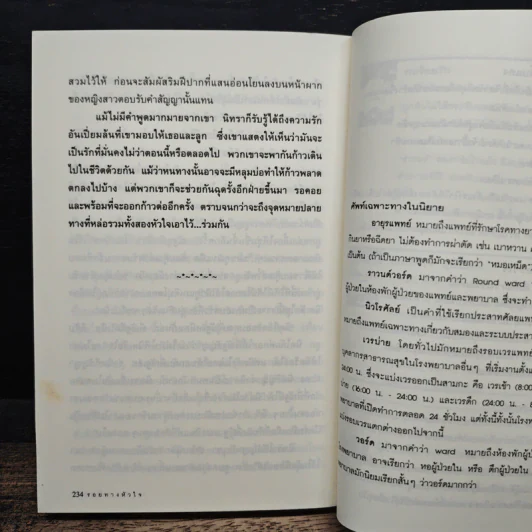 สวมไว้ให้ ก่อนจะสัมผัสริมฝีปากที่แสนอ่อนโยนลงบนหน้าผาก
ของหญิงสาวตอบรับคำสัญญานั้นแทน
แม้ไม่มีคำพูดมากมายจากเขา นิทราก็รับรู้ได้ถึงความรัก
อันเปี่ยมล้นที่เขามอบให้เธอและลูก ซึ่งเขาแสดงให้เห็นว่ามันจะ
เป็นรักที่มั่นคงไม่ว่าตอนนี้หรือตลอดไป พวกเขาจะพากันก้าวเดิน
ไปในชีวิตด้วยกัน แม้ว่าหนทางนั้นอาจจะมีหลุมบ่อทำให้ก้าวพลาด
ตกลงไปบ้าง แต่พวกเขาก็จะช่วยกันฉุดรั้งอีกฝ่ายขึ้นมา รอคอย
และพร้อมที่จะออกก้าวต่ออีกครั้ง ตราบจนกว่าจะถึงจุดหมายปลาย
ทางที่หล่อรวมทั้งสองหัวใจเอาไว้...ร่วมกัน
~*~*~*~*~
234 รอยทางหัวใจ
ศัพท์เฉพาะทางในนิยาย
อายุรแพทย์ หมายถึงแพทย์ที่รักษาโรคทางยา
กินยาหรือฉีดยา ไม่ต้องทำการผ่าตัด เช่น เบาหวาน
เป็นต้น (ถ้าเป็นภาษาพูดก็มักจะเรียกว่า "หมอเหม็ด")
ราวนด์วอร์ด มาจากคำว่า Round ward
ผู้ป่วยในห้องพักผู้ป่วยของแพทย์และพยาบาล ซึ่งจะทำ
นิวโรศัลย์ เป็นคำที่ใช้เรียกประสาทศัลยแพทย์
หมายถึงแพทย์เฉพาะทางเกี่ยวกับสมองและระบบประสาท
เวรบ่าย โดยทั่วไปมักหมายถึงรอบเวรแพทย์
บุคลากรสาธารณสุขในโรงพยาบาลอื่นๆ ที่เริ่มงานตั้งแต่
24:00 น. ซึ่งจะแบ่งเวรออกเป็นสามกะ คือ เวรเช้า (8:00
บ่าย (16:00 น. - 24:00 น.) และเวรดึก (24:00 น. - 8
พยาบาลที่เปิดทำการตลอด 24 ชั่วโมง แต่ทั้งนี้ทั้งนั้นโรงพ
แบ่งรอบเวรแตกต่างออกไปจากนี้
วอร์ด มาจากคำว่า ward หมายถึงห้องพักผู้ป่
โรงพยาบาล อาจเรียกว่า หอผู้ป่วยใน หรือ ตึกผู้ป่วยใน
พยาบาลมักนิยมเรียกสั้นๆ ว่าวอร์ดมากกว่า